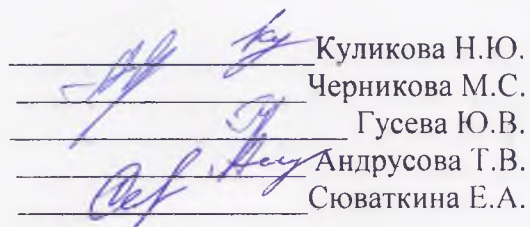 Куликова Н.Ю.
Черникова М.С.
Гусева Ю.В.
Андрусова Т.В.
Сюваткина Е.А.